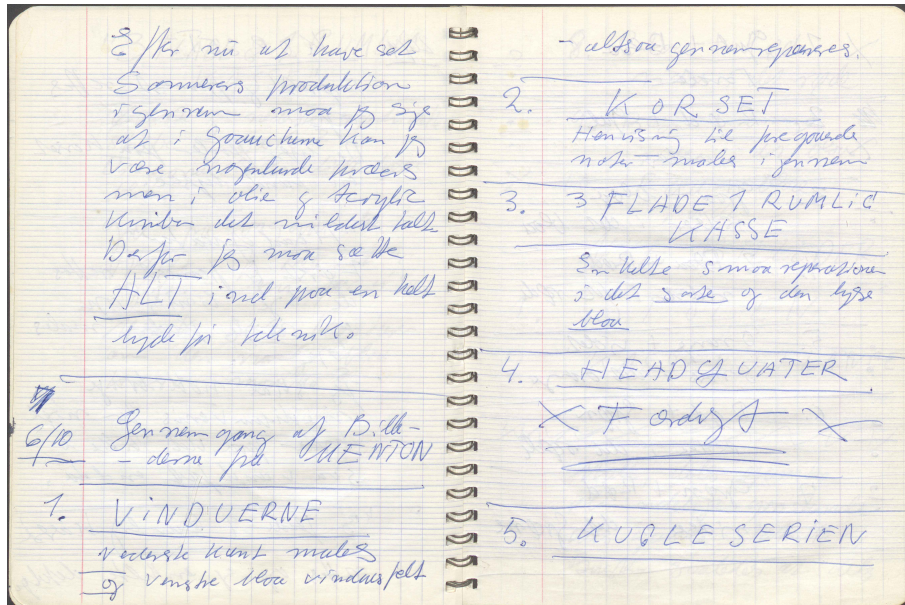 Efter nu at have set
Sommerens produktion
igennem maa jeg sige
at i Gouacherne kan jeg
være nogenlunde præcis
men i olie og Acrylic
kniber det mildest talt.
Derfor jeg maa sætte
ALT ind paa en helt
lydefri teknik.
6/10
Gennemgang af Bille-
-derne fra MENTON
1. VINDUERNE
nederste kant males
og venstre blaa vinduesfelt
- altsaa gennemrepareres.
2. KORSET
Henvisning til foregaaende
noter males igennem
3. 3 FLADE 1 RUMLIG
KASSE
Enkelte smaa reparationer
i det sorte og den lyse
blaa
4. HEAD OF WATER
X Færdigt X
5. KUGLESERIEN